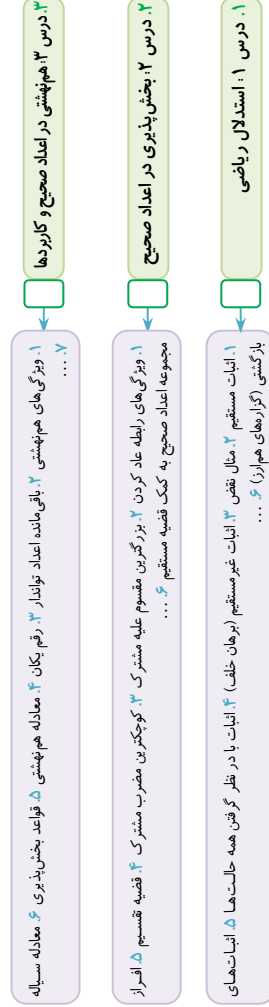 ۱. درس ۱: استدلال ریاضی
۱. اثبات مستقیم ۲. مثال نقض ۳. اثبات غیر مستقیم (برهان خلف) ۴. اثبات با در نظر گرفتن همه حالت‌ها ۵. اثبات‌های
بازگشتی (گزاره‌های هم‌ارز) ۶. ...
۲. درس ۲: بخش‌پذیری در اعداد صحیح
۱. ویژگی‌های رابطه عاد کردن ۲. بزرگترین مقسوم علیه مشترک ۳. کوچکترین مضرب مشترک ۴. قضیه تقسیم ۵. افراز
مجموعه اعداد صحیح به کمک قضیه مستقیم ۶. ...
۳. درس ۳: هم‌نهشتی در اعداد صحیح و کاربردها
۱. ویژگی‌های هم‌نهشتی ۲. باقی‌مانده اعداد توان‌دار ۳. رقم یکان ۴. معادله هم‌نهشتی ۵. قواعد بخش‌پذیری ۶. معادله سیاله
۷. ...